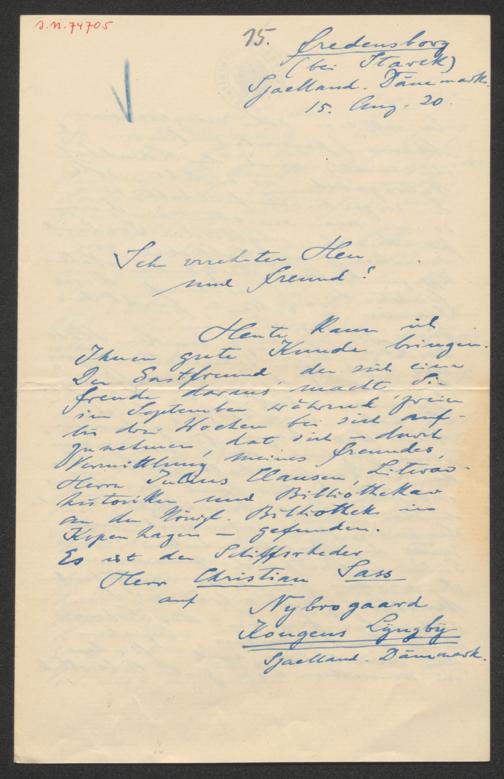 J.N. 74705
15.
Fredensborg
(bei Starck)
Sjaelland. Dänemark.
15. Aug. 20.
Sehr verehrter Herr
und Freund!
Heute kann ich
Ihnen gute Kunde bringen.
Der Gastfreund, der sich eine
Freude daraus macht, Sie
im September während zweier
bis drei Wochen bei sich auf-
zunehmen, hat sich – durch
Vermittlung meines Freundes,
Herrn Julius Clausen, Literar-
historiker und Bibliothekar
an der Königl. Bibliothek in
Kopenhagen – gefunden.
Es ist der Schiffsrheder
Herr Christian Sass
auf Nybrogaard
Kongens Lyngby
Sjaelland. Dänemark.